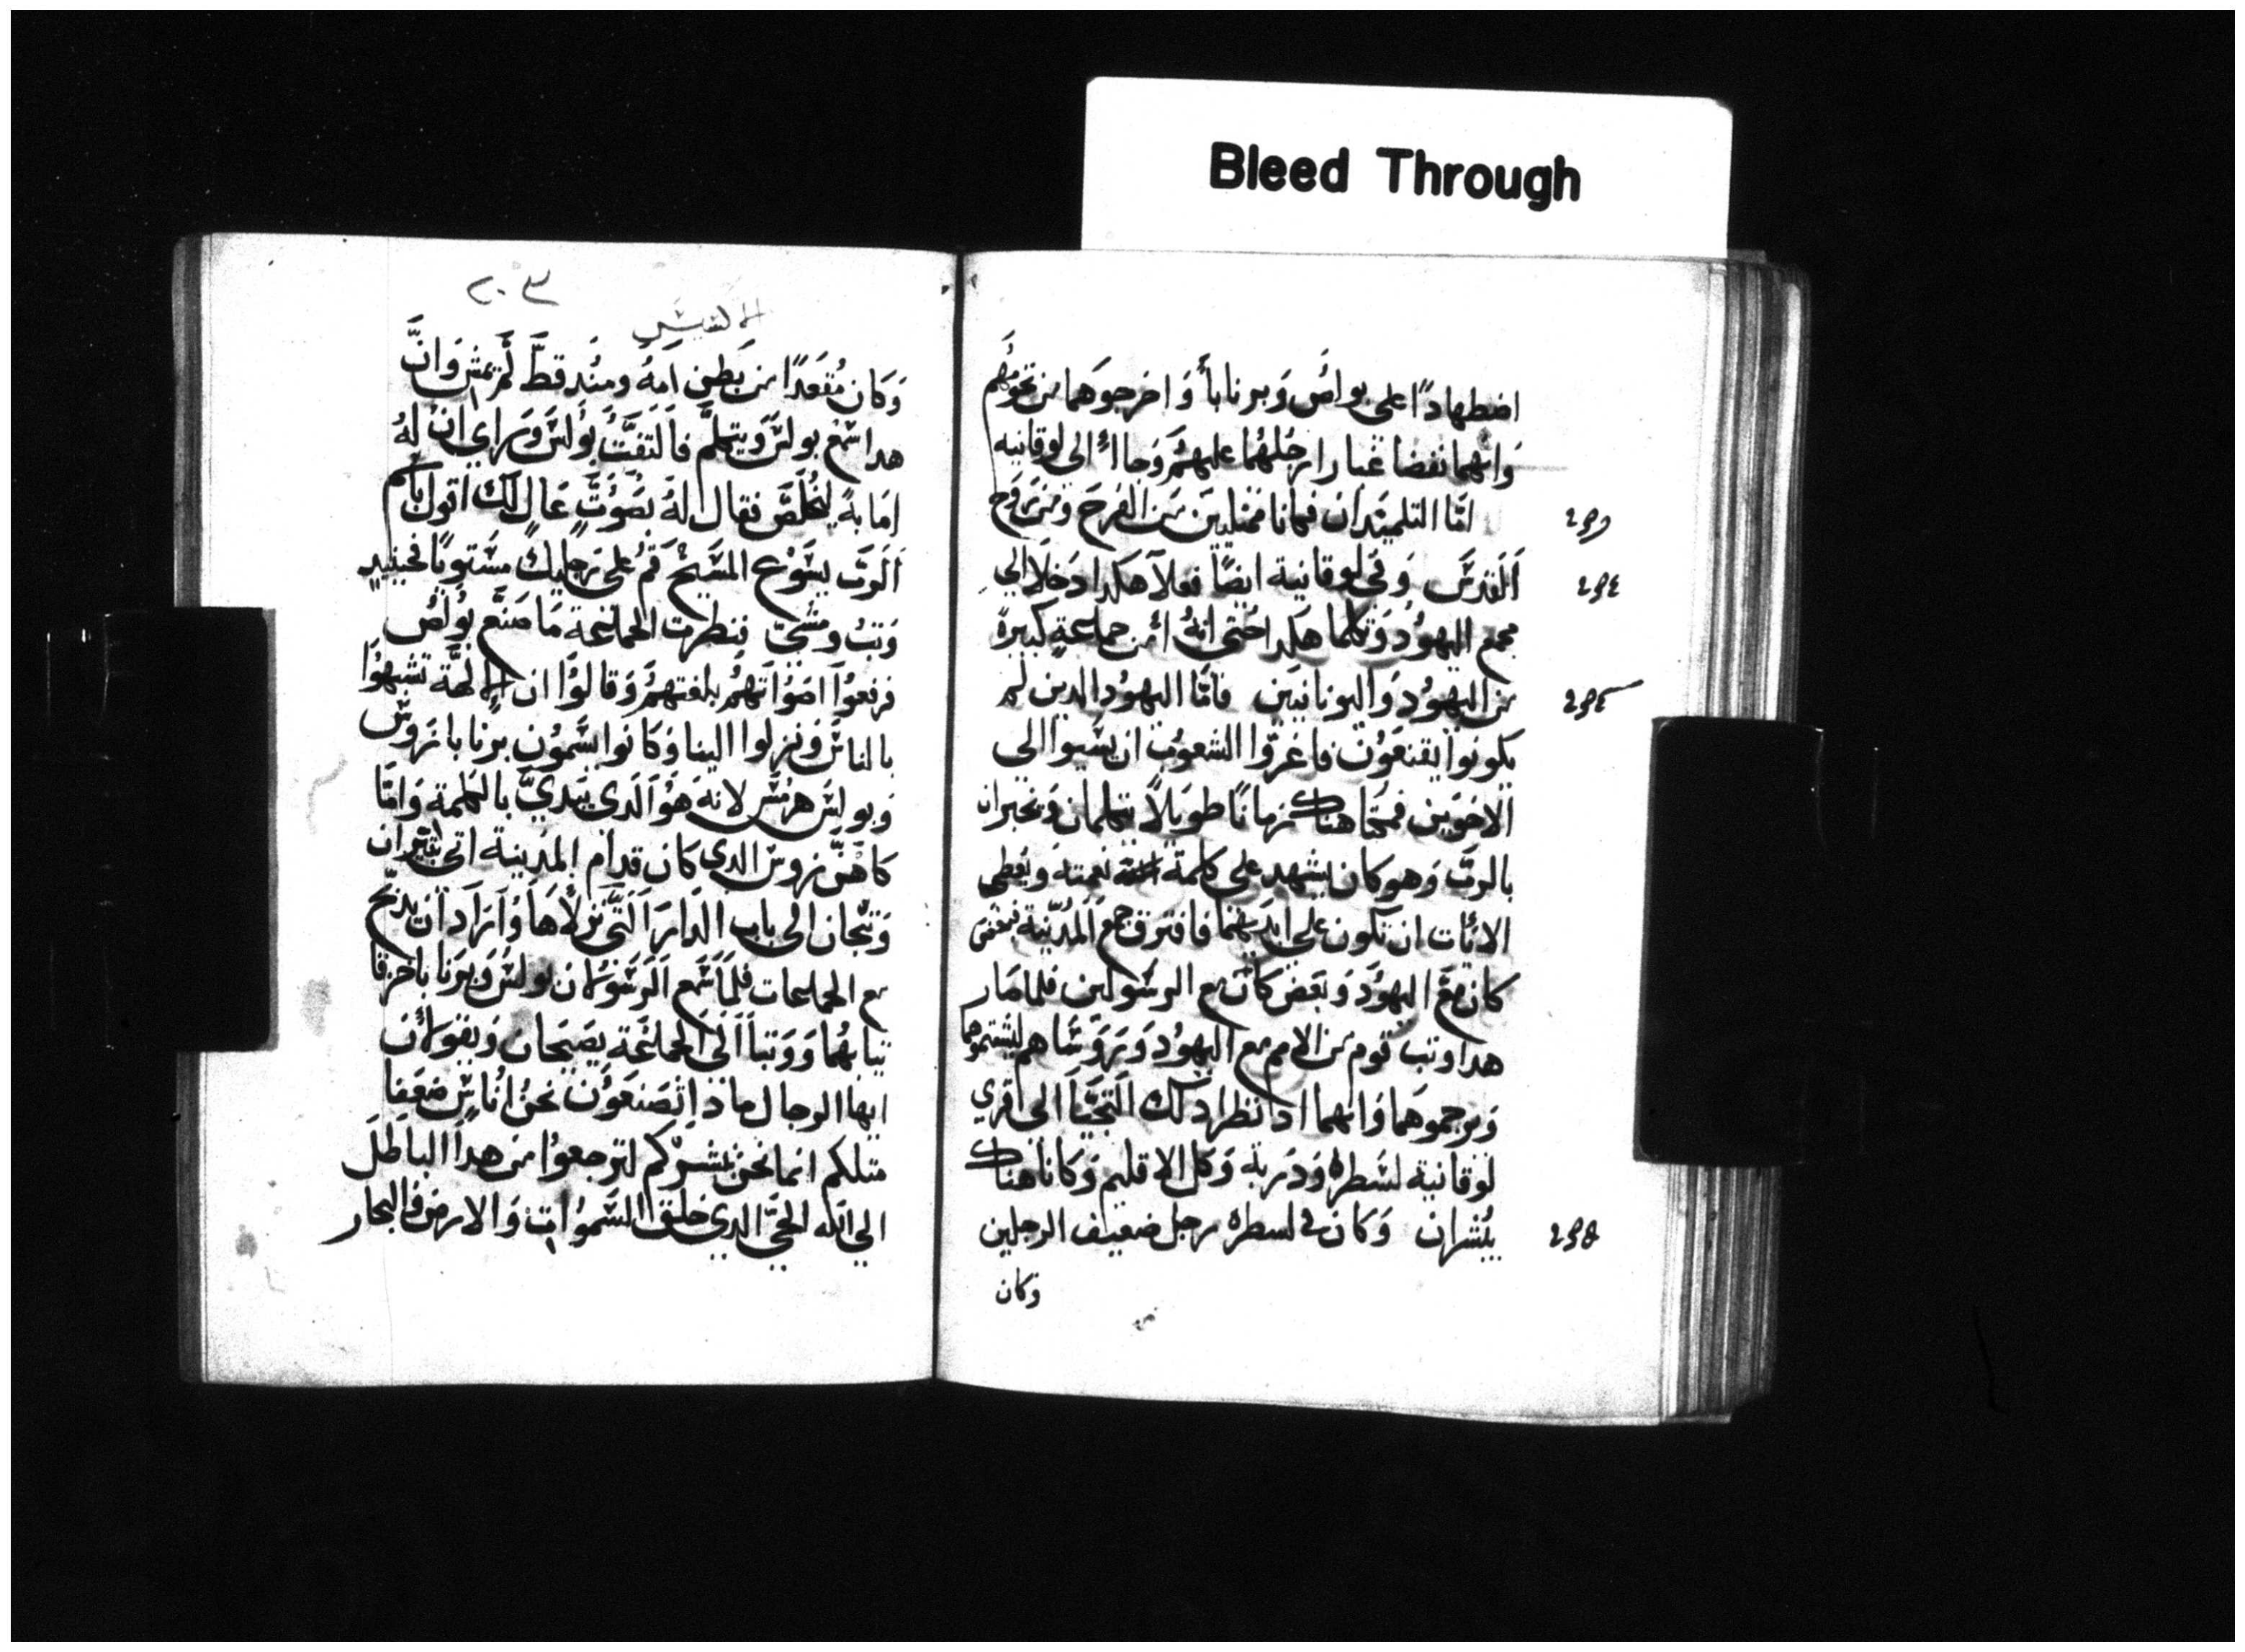 Bleed Through
اضطهادًا على بولس وبرنابا واخرجوهما من تخومهم
وانهما نفضا غبار ارجلهما عليهم وجاا الى لوقانيه
امّا التلميدان فكانا ممتليين من الفرح ومن روح
القدس وفي لوقانية ايضًا فعلا هكدا دخلا الي
مجمع اليهود وتكلما هكدا حتى انه امن جماعة كبيرة
من اليهود واليونانيين فامّا اليهود الدين لم
يكونوا يقنعون فاغروا الشعوب ان يسيوا الى
الاخوين فمكتا هناك زمانًا طويلًا يتكلمان ويخبران
بالرب وهو كان يشهد على كلمة نعمته ويعطى
الايات ان تكون على ايديهما فافترق جمع المدينة فبعض
كان مع اليهود وبعض كان مع الرسولين فلما صار
هدا وتب قوم من الامم مع اليهود وروساهم ليشتموهما
ويرجموهما وانهما ادا نظرا دلك التجيا الى قري
لوقانية لسطره ودربة وكل الاقليم وكانا هناك
يبشران وكان في لسطره رجل ضعيف الرجلين
وكان
٢٠٣
وكان مقعدًا من بطن امه ومند قط لم يمش وان
هدا سمع بولس ويتكلم فالتفت بولس وراي ان له
امابة ليخلص فقال له بصوت عال لك اقول باسم
الرب يسوع المسيح قم على رجليك مستويًا فحينيد
وتب ومشى فنظرت الجماعة ما صنع بولس
فرفعوا اصواتهم بلغتهم وقالوا ان الالهة تشبهوا
بالناس ونزلوا الينا وكانوا يسمون برنابا زوس
وبولس هرمس لانه هو الدي يبدي بالكلمة وامّا
كاهن زوس الدي كان قدام المدينة اتى بثيران
وتيجان الى باب الدار التي نزلاها واراد ان يدبح
مع الجماعات فلما سمع الرسولان بولس وبرنابا خرقا
تيابهما ووتبا الى الجماعة يصيحان ويقولان
ايها الرجال مادا تصنعون نحن اناس ضعفا
متلكم انما نحن نبشركم لترجعوا من هدا الباطل
الي الله الحي الدي خلق السموات والارض والبحار